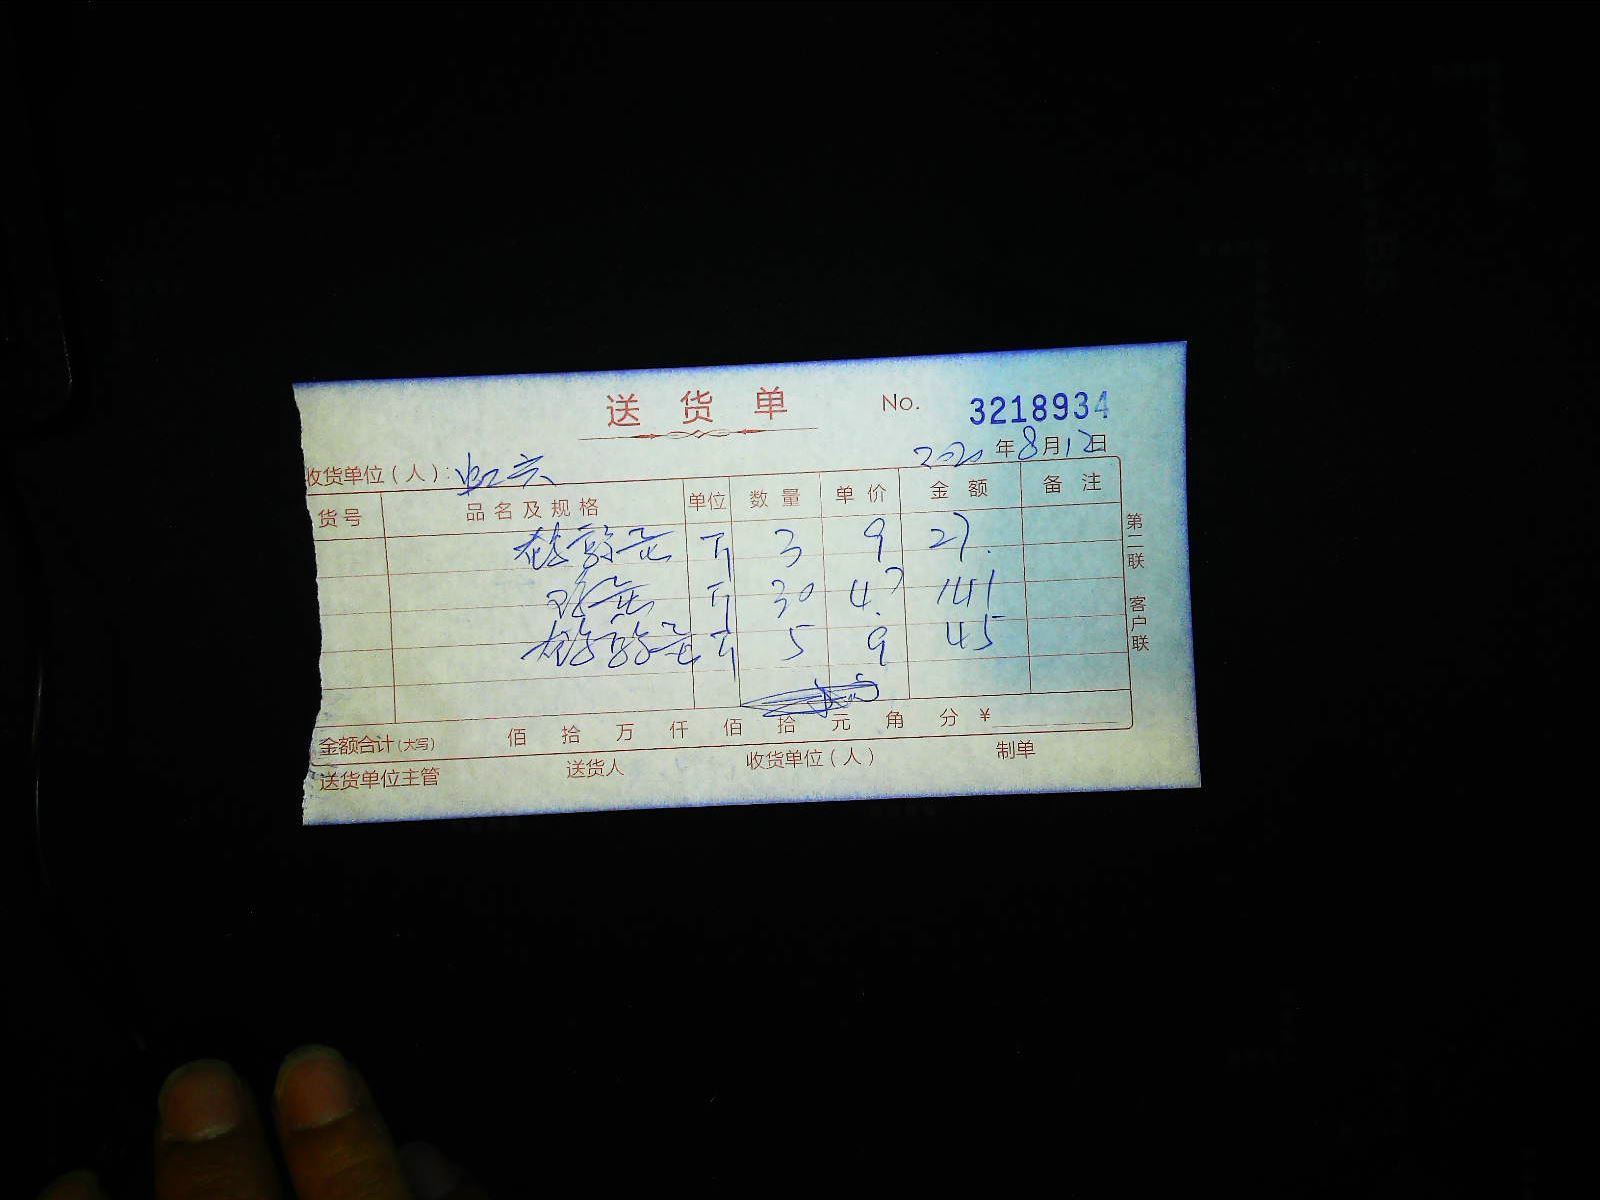 送货单 No. 3218934
2020年8月12日
收货单位（人）：
货号 品名及规格 单位 数量 单价 金额 备注
斤 3 9 27.
斤 30 4.7 141
斤 5 9 45
金额合计（大写） 佰 拾 万 仟 佰 拾 元 角 分 ¥
送货单位主管 送货人 收货单位（人） 制单
第二联 客户联